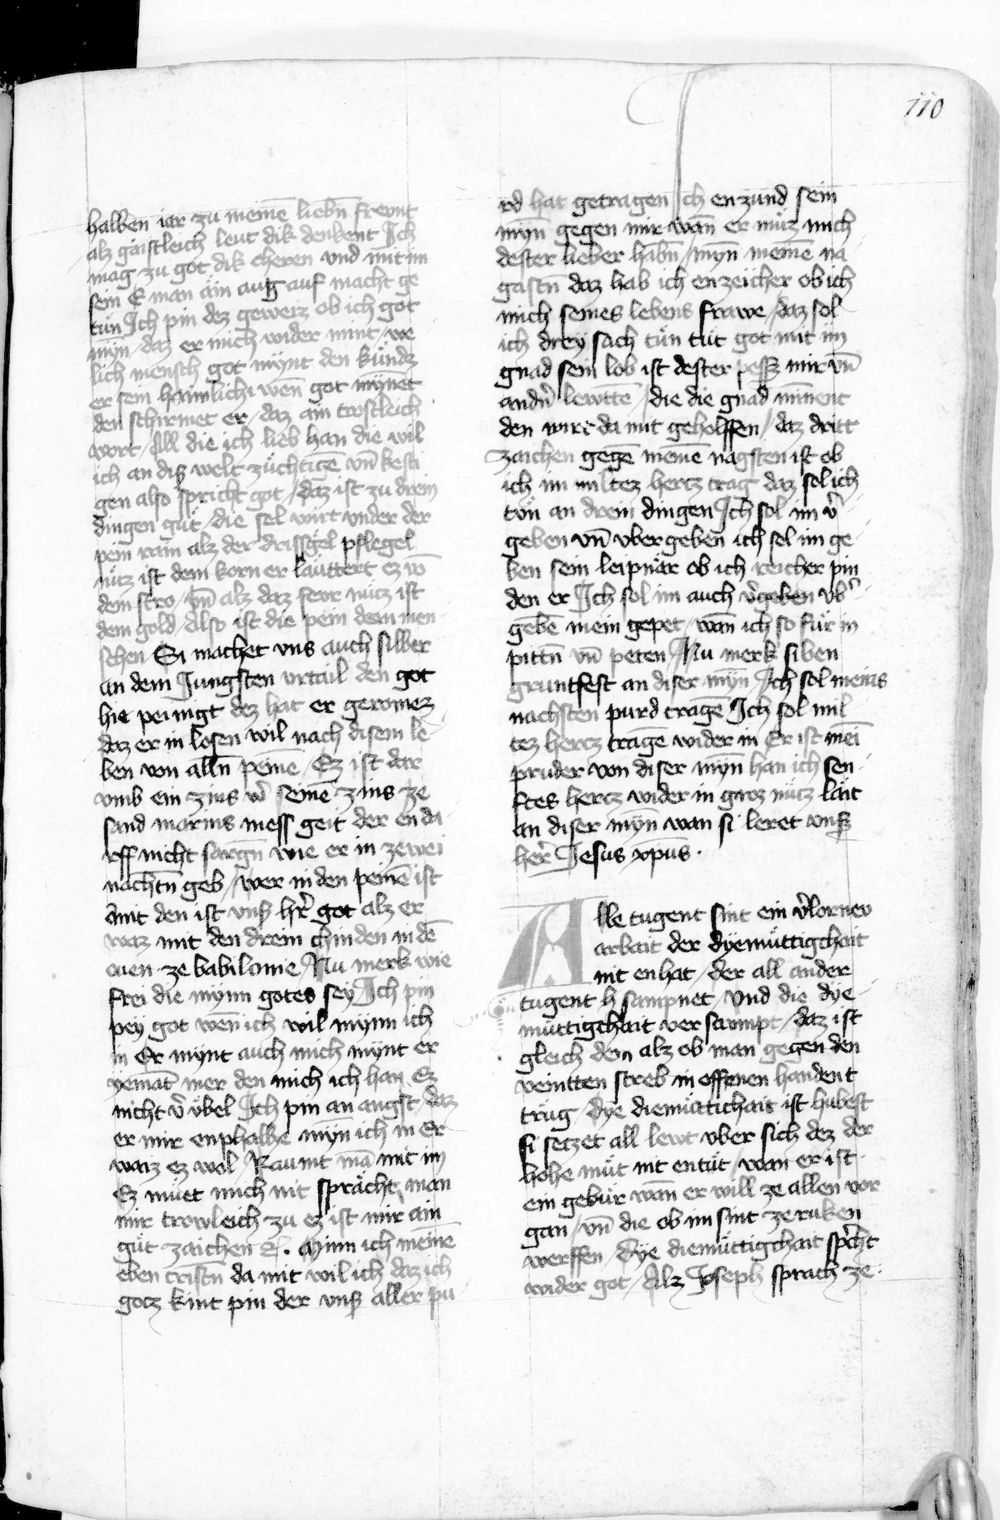 110
halben iar zu meinē liebn̄ frewnt
alz gaistleich leut dik denkent Ich
mag zu got dik cheren vnd mit im
sein E man ain aug auf macht ge
tün Ich pin dez gewerz ob ich got
mỹn daz er mich wider mint / we
lich mensch got mỹnt den kündz
er sein haimlichi wen̄ got mỹnet
den schirmet er / daz ain trostleich
wort / All die ich lieb han die wil
ich an diß welt züchtigē vn̄ kesti
gen also spricht got / daz ist zu drein
dingen güt / die sel wirt vnder der
pein rain alz der drisschel pflegel
nütz ist dem korn er lauttert ez vō
dem stro / vn̄ alz daz fewr nütz ist
dem gold / Also ist die pein dem men
schen Si machet vns auch silber
an dem Jungsten vrtail den got
hie peinigt dez hat er geromez
daz er in losen wil nach disem le
ben von alln̄ peinē / Ez ist dar
vmb ein zins vō seinē zins ze
sand marins mess geit der en da
rff nicht sargn̄ wie er in zewei
nachtn̄ geb / wer in den peinē ist
mit den ist vnß hr̄ got alz er
waz mit den drein chinden in dē
ouen ze babilonie / Nu merk wie
frei die mynn gotes sey Ich pin
pey got wen̄ ich wil mynn ich
in Er mynt auch mich mynt er
yemāt mer den mich ich han Ez
nicht v̄ übel Ich pin an angst / daz
er mir enphalhe mỹn ich in Er
waiz ez wol / Raumt mā mit im
Ez müet mich nit sprächt man
mir trowleich zu ez ist mir ain
güt zaichen &. Minn ich meinē
eben cristn̄ da mit wil ich daz ich
gotz kint pin der vnß aller pu
rd hat getragen Ich enzünd sein
mỹn gegen mir wan̄ er müz mich
dester lieber habn̄ / mỹn meinē na
gastn̄ daz hab ich en zeicher ob ich
mich seines lebens frawe / daz sol
ich drey sach tün tüt got mit im
gnad sein lob ist dester pesß mir vn̄
andn̄ lewttē / die die gnad minnent
den wirt da mit geholffen / daz dritt
zaichen gegē meinē nagsten ist ob
ich im miltez hertz trag daz sol ich
tün an drein dingen Ich sol im v̄
geben vn̄ vbergeben ich sol im ge
ben sein leipnar ob ich reicher pin
den er Ich sol im auch v̄geben vb̄
gebē mein gepet / wan̄ ich so für in
pittn̄ vn̄ peten / Nu merk siben
gruntfest an diser mỹn / Ich sol meins
nachsten purd tragē Ich sol mil
tez hertz tragē wider in Er ist mei
pruder von diser mỹn han ich sen
ftes hertz wider in groz nütz lait
an diser mỹn wan si leret vnß
her̄ Jesus xpus .
Alle tugent sint ein v̄lornev
arbait der dyemüttigchait
nit enhat / der all ander
tugent h sampnet / vnd die dye
müttigchait versawmpt / daz ist
gleich dem alz ob man gegen den
veintten streb in offenen handen t
trüg / Dye diemüttichait ist hubest
si setzet all lewt vber sich dez der
hohe müt nit entüt / wan er ist
ein gebür wan̄ er will ze allen vor
gan / vn̄ die ob im sint ze ruken
werffen / Dye diemüttigchait spr̄cht
wider got / Alz Joseph sprach ze